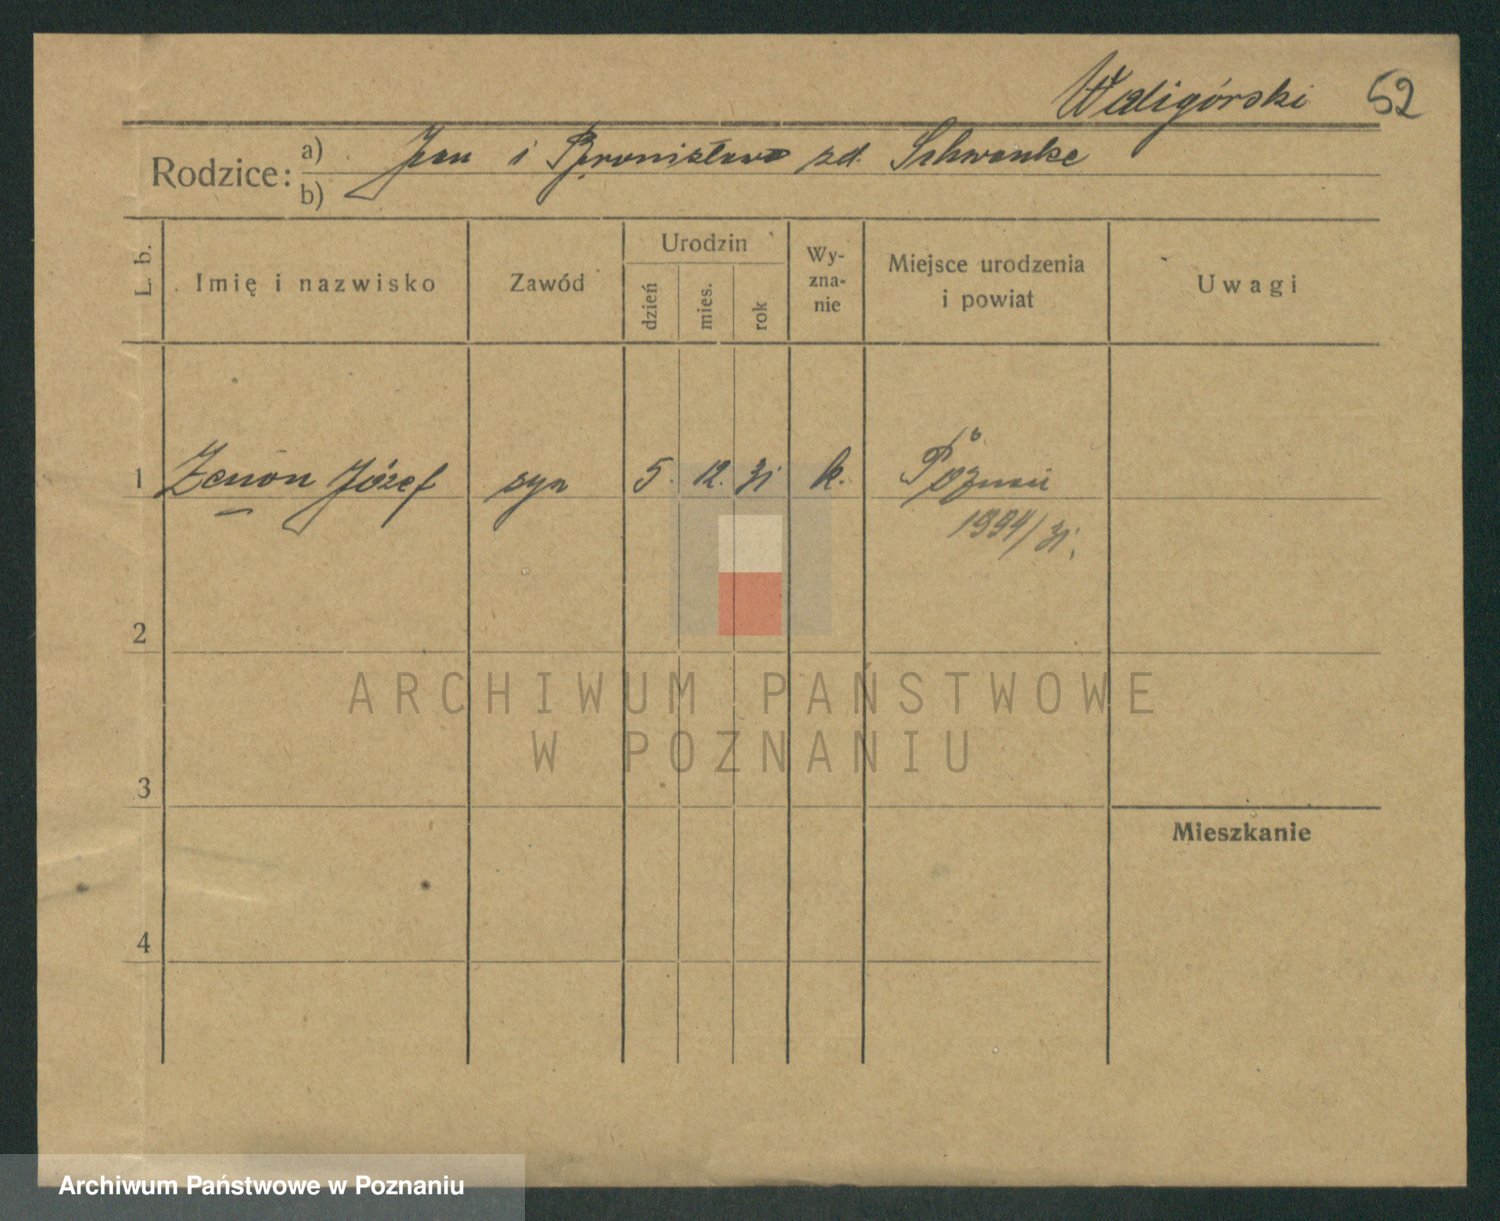 Waligórski 52
Rodzice: a) Jan i Bronisława zd. Schwanke
b)
L. b. Imię i nazwisko Zawód Urodzin dzień mies. rok Wy-zna-nie Miejsce urodzenia i powiat Uwagi
1 Zenon Józef syn 5. 12. 31 k. Poznań
1994/31.
2
ARCHIWUM PAŃSTWOWE
W POZNANIU
3
Mieszkanie
4
Archiwum Państwowe w Poznaniu